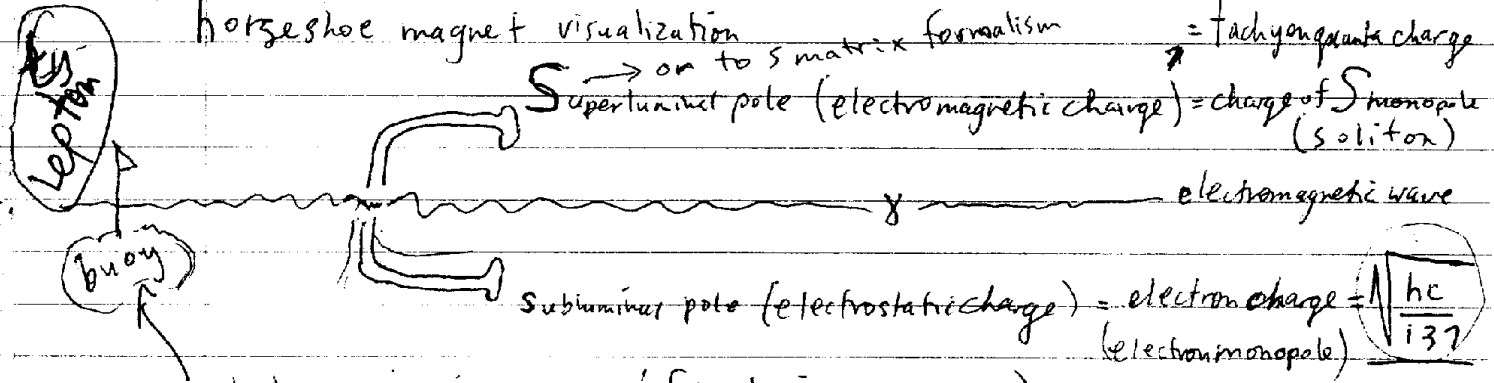 horseshoe magnet visualization = tachyon quanta charge
→ on to S matrix formalism
Superluminal pole (electromagnetic charge) = charge of S monopole
(soliton)
Lepton
γ electromagnetic wave
buoy
Subluminal pole (electrostatic charge) = electron charge = √hc/137
(electron monopole)